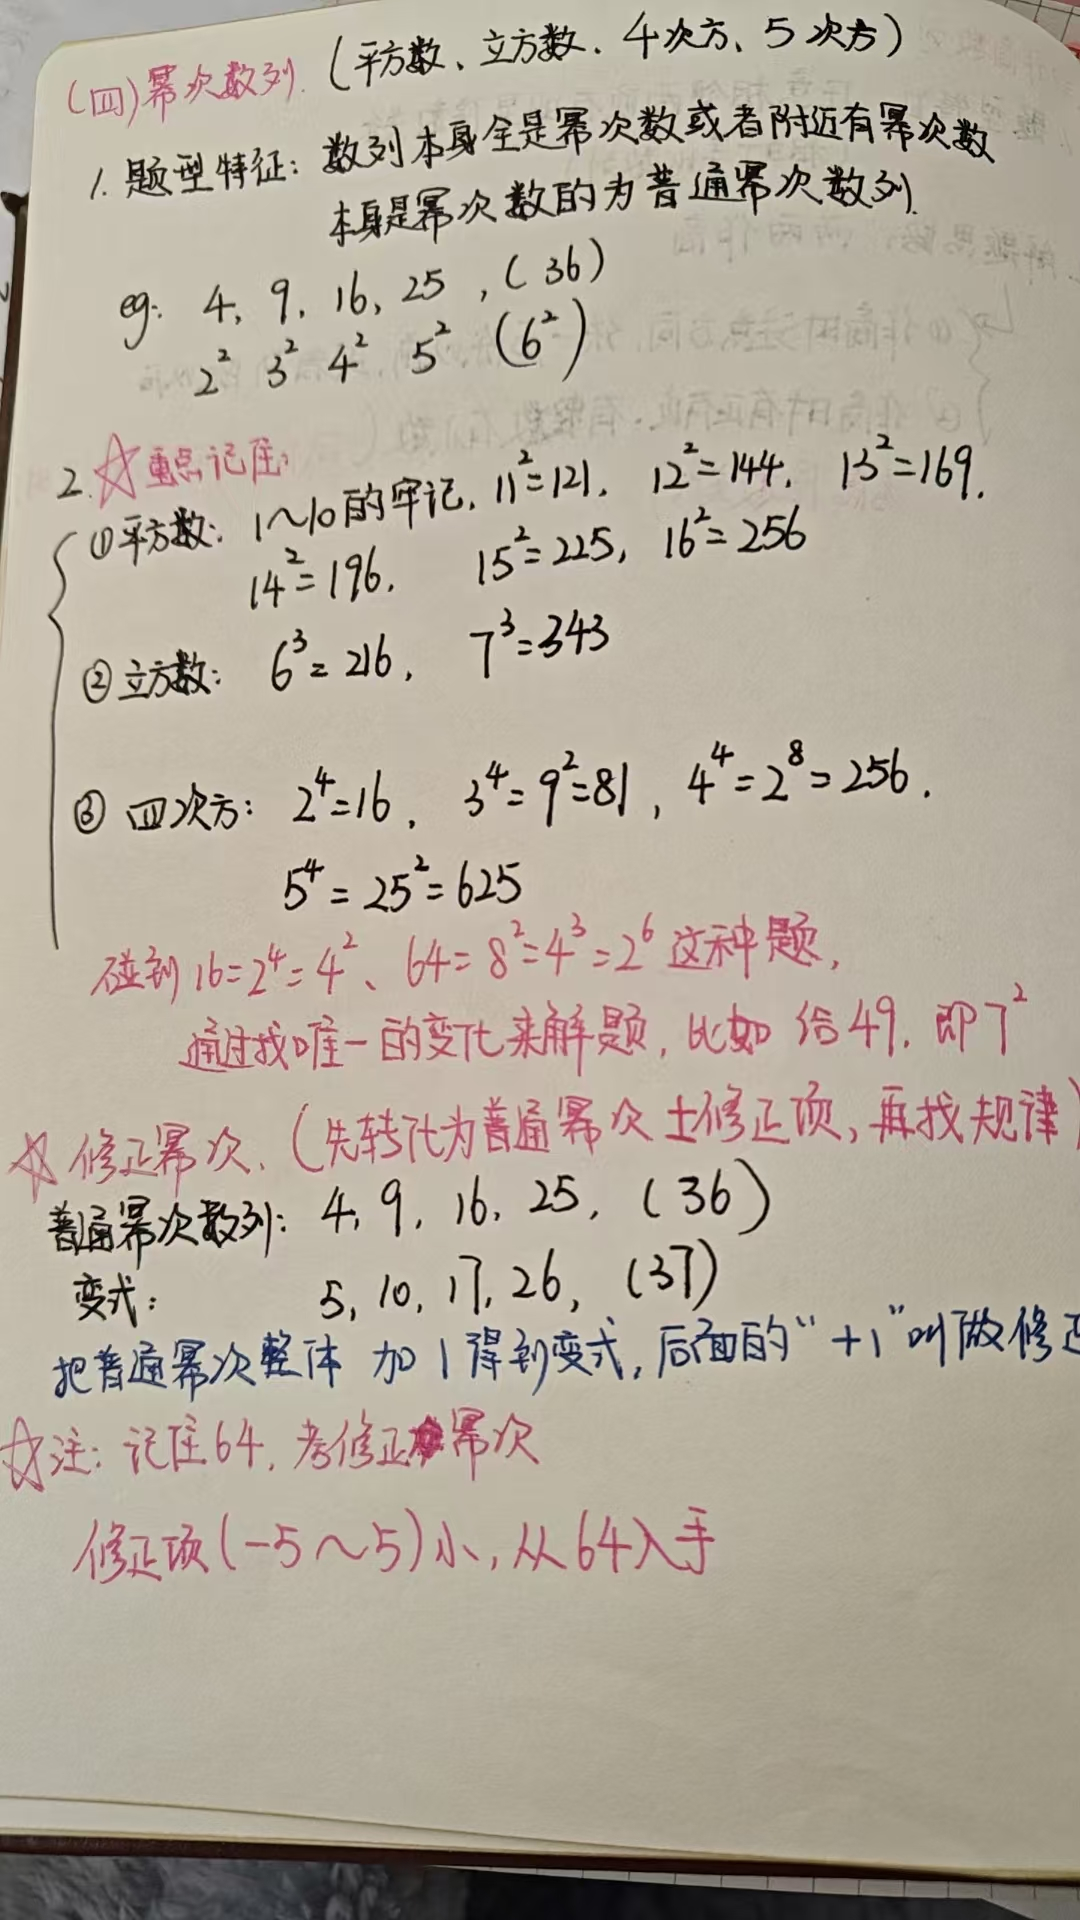 (四)幂次数列. (平方数、立方数、4次方、5次方)
1. 题型特征: 数列本身全是幂次数或者附近有幂次数
本身是幂次数的为普通幂次数列.
eg: 4, 9, 16, 25, (36)
2² 3² 4² 5² (6²)
2. ☆重点记住:
①平方数: 1～10的牢记, 11²=121, 12²=144, 13²=169,
14²=196, 15²=225, 16²=256
②立方数: 6³=216, 7³=343
③四次方: 2⁴=16, 3⁴=9²=81, 4⁴=2⁸=256.
5⁴=25²=625
碰到16=2⁴=4²、64=8²=4³=2⁶这种题,
通过找唯一的变化来解题, 比如给49, 即7²
☆修正幂次. (先转化为普通幂次±修正项, 再找规律)
普通幂次数列: 4, 9, 16, 25, (36)
变式: 5, 10, 17, 26, (37)
把普通幂次整体加1得到变式, 后面的“+1”叫做修正
☆注: 记住64, 考修正幂次
修正项(-5～5)小, 从64入手